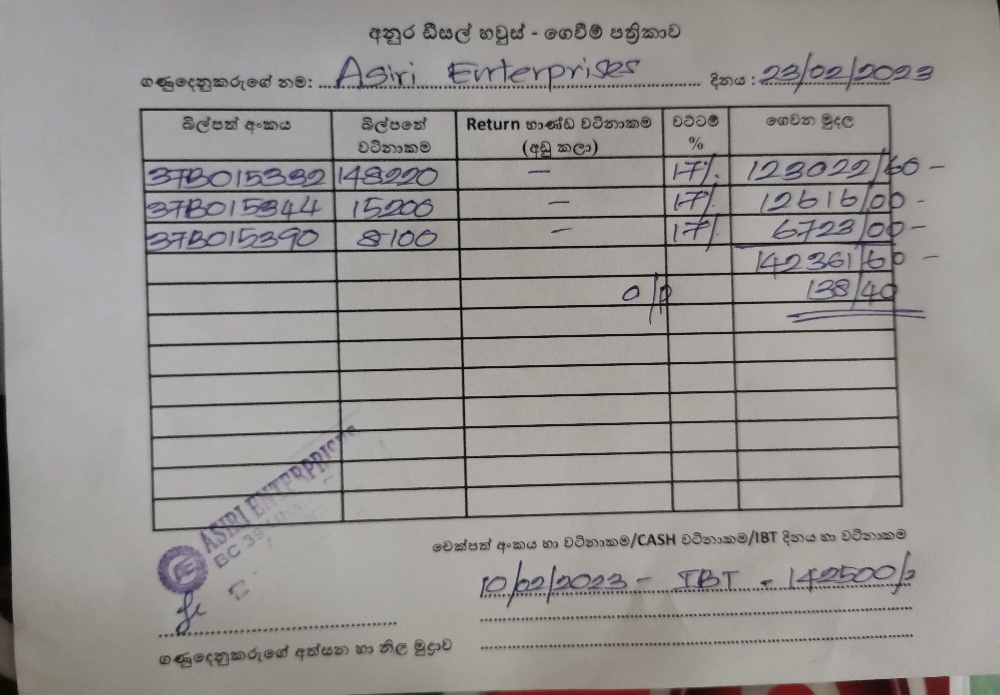 අනුර ඩීසල් හවුස් - ගෙවීම් පත්‍රිකාව
ගණුදෙනුකරුගේ නම: Asiri Enterprises දිනය : 23/02/2023
බිල්පත් අංකය බිල්පතේ වටිනාකම Return භාණ්ඩ වටිනාකම (අඩු කලා) වට්ටම් % ගෙවන මුදල
37B015332 148220 — 17% 123022/60 -
37B015344 15200 — 17% 12616/00 -
37B015390 8100 — 17% 6723/00 -
142361/60 -
O/P 138/40
ASIRI ENTERPRISES
AE
චෙක්පත් අංකය හා වටිනාකම/CASH වටිනාකම/IBT දිනය හා වටිනාකම
10/02/2023 - IBT - 142500/
ගණුදෙනුකරුගේ අත්සන හා නිල මුද්‍රාව